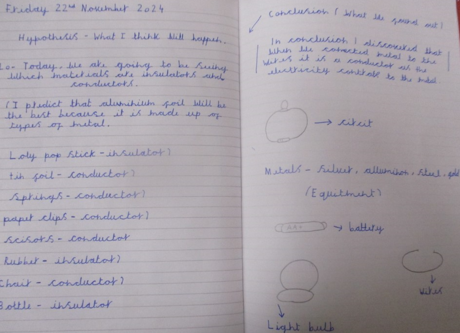 Friday 22nd November 2024
Hypothesis - What I think will happen.
Lo - Today, we are going to be seeing
which materials are insulators and
conductors.
(I predict that aluminium foil will be
the best because it is made up of
types of metal.
Loly pop stick - insulator)
tin foil - conductor)
springs - conductor)
paper clips - conductor)
scisors - conductor
Rubber - insulator)
Chair - conductor)
Bottle - insulator
Conclusion (What we found out)
In conclusion I discovered that
when we connected metal to the
wires it is a conductor as the
electricity to the metal
circit
Metals - Silver, steel, gold
(Equitment)
AAA
battery
wires
Light bulb